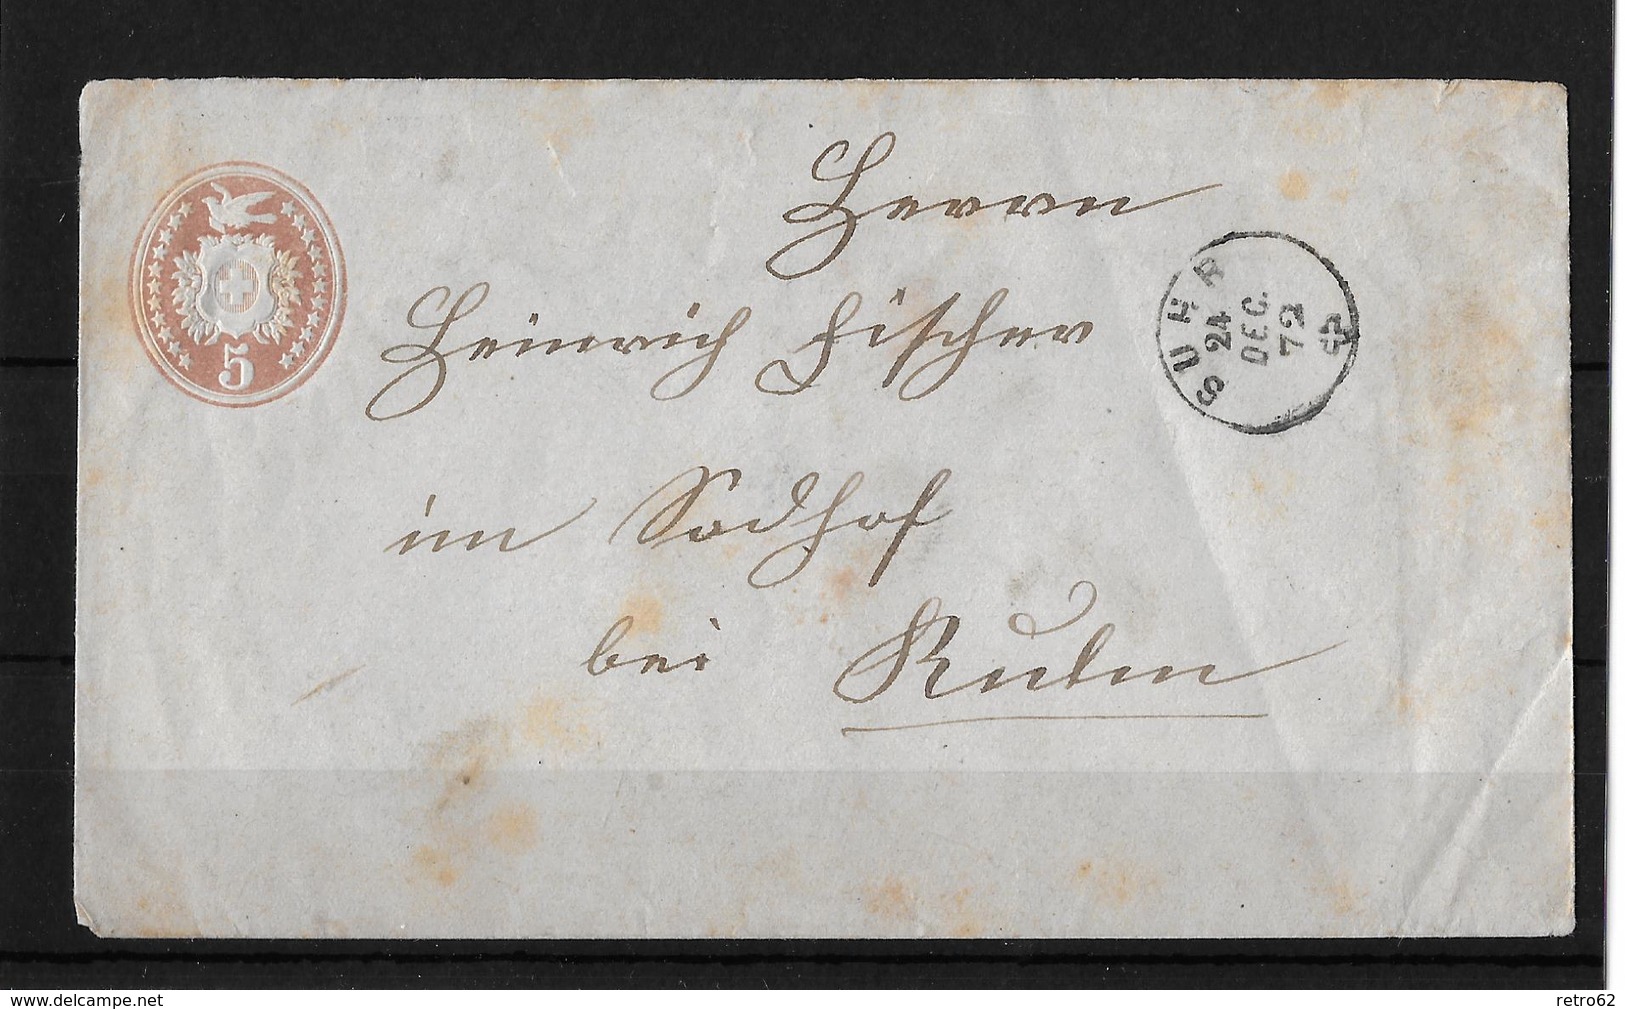 Herrn
Heinrich Fischer
im Sodhof
bei Kulm
5
SUHR
24
DEC.
72
www.delcampe.net
retro62